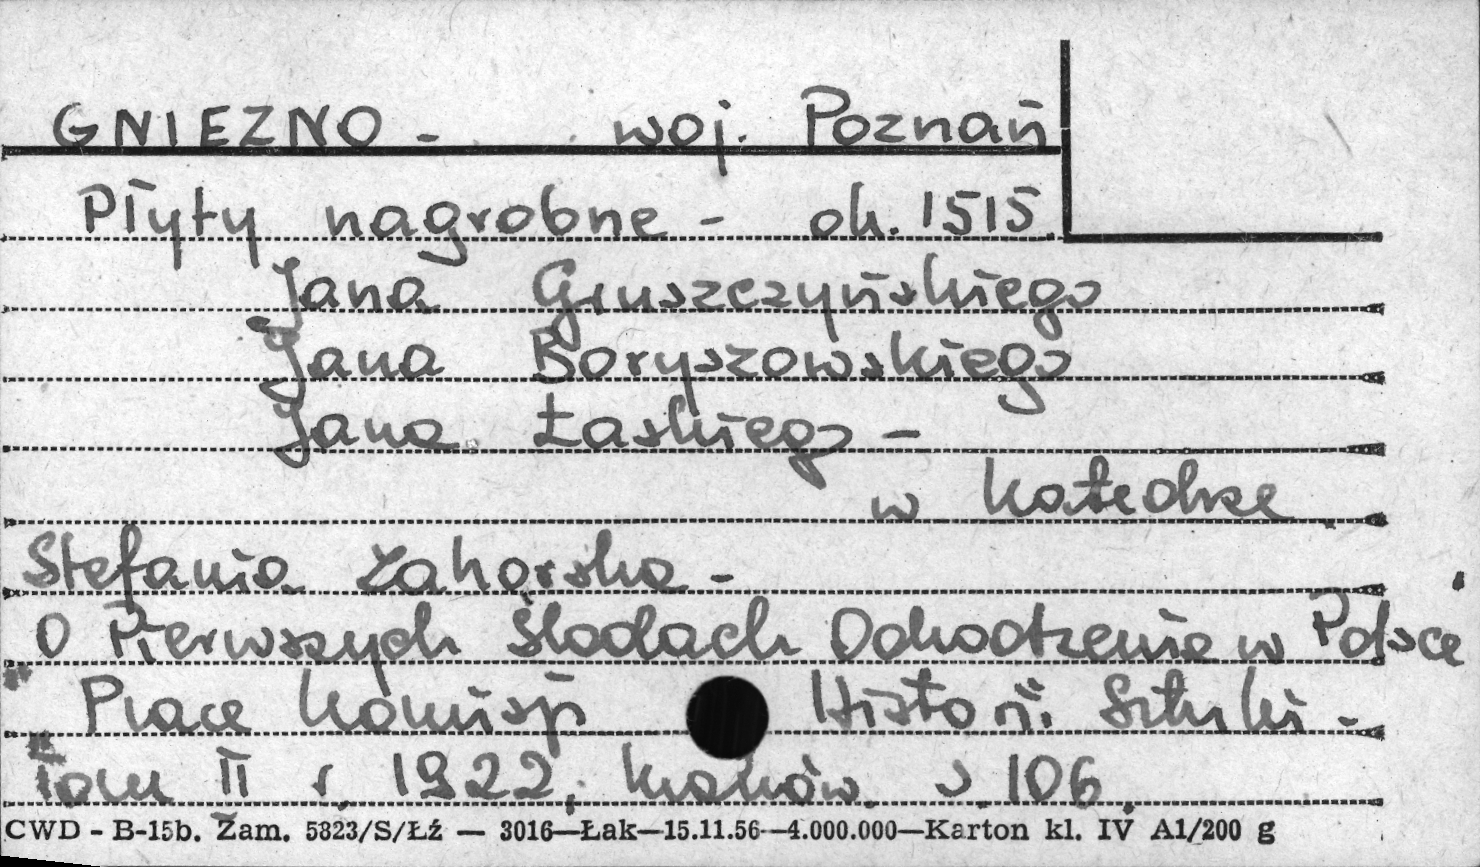 GNIEZNO - woj. Poznań
Płyty nagrobne - ok. 1515.
Jana Gruszczyńskiego
Jana Boryszowskiego
Jana Łaskiego -
w Katedrze
Stefania Zahorska -
O Pierwszych Śladach Odrodzenia w Polsce
Prace Komisji Historii Sztuki -
Tom II r. 1922, Kraków. s. 106.
CWD - B-15b. Zam. 5823/S/Łź — 3016—Łak—15.11.56—4.000.000—Karton kl. IV A1/200 g